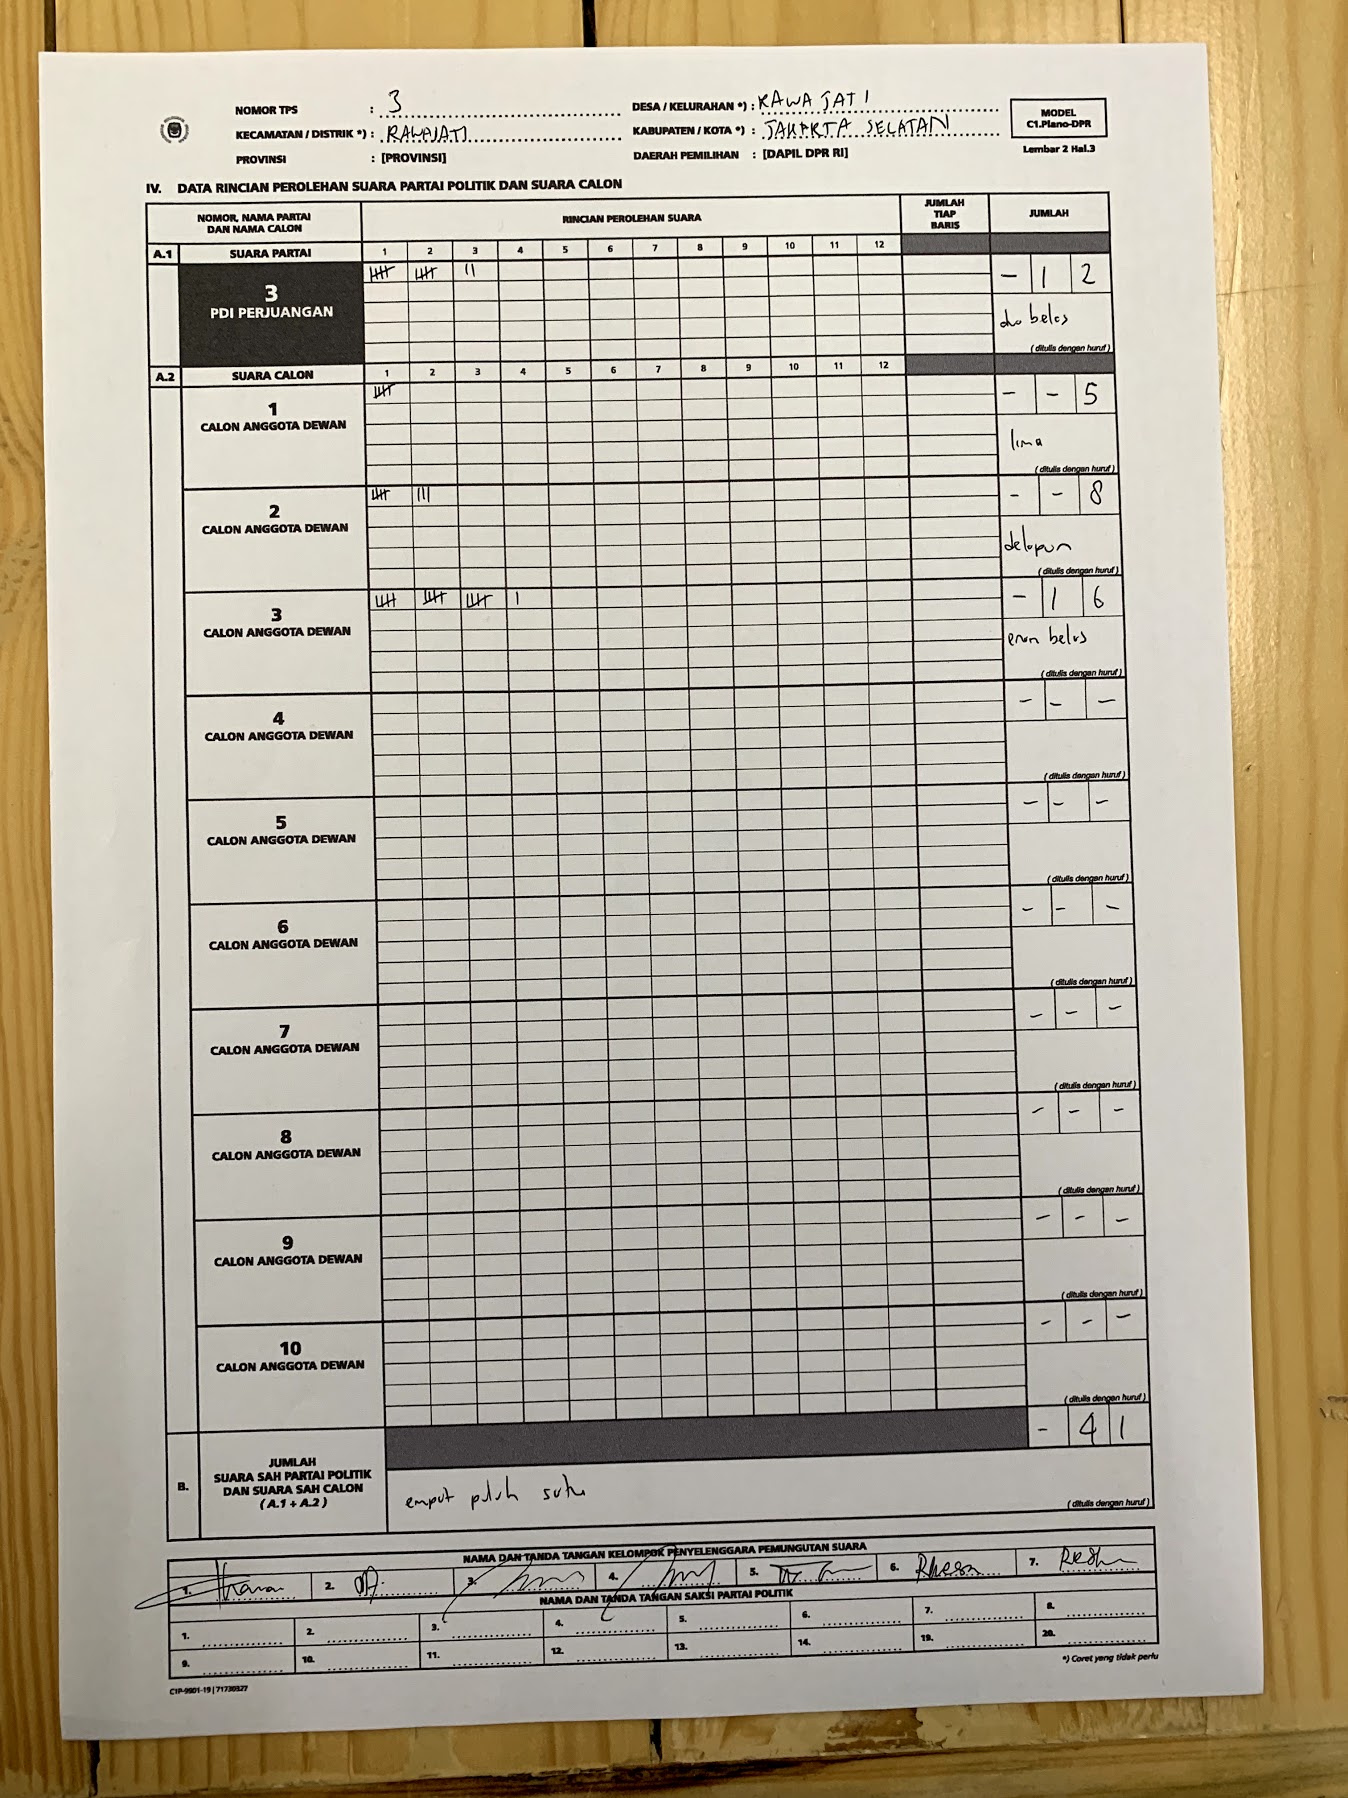 NOMOR TPS : 3 DESA / KELURAHAN *) : RAWA JATI
KECAMATAN / DISTRIK *) : RAWAJATI KABUPATEN / KOTA *) : JAKARTA SELATAN
PROVINSI : [PROVINSI] DAERAH PEMILIHAN : [DAPIL DPR RI]
MODEL
C1.Plano-DPR
Lembar 2 Hal.3
IV. DATA RINCIAN PEROLEHAN SUARA PARTAI POLITIK DAN SUARA CALON
NOMOR, NAMA PARTAI
DAN NAMA CALON
RINCIAN PEROLEHAN SUARA
JUMLAH
TIAP
BARIS
JUMLAH
A.1 SUARA PARTAI 1 2 3 4 5 6 7 8 9 10 11 12
3
PDI PERJUANGAN
- 1 2
dua belas
(ditulis dengan huruf)
A.2 SUARA CALON 1 2 3 4 5 6 7 8 9 10 11 12
1
CALON ANGGOTA DEWAN
- - 5
lima
(ditulis dengan huruf)
2
CALON ANGGOTA DEWAN
- - 8
delapan
(ditulis dengan huruf)
3
CALON ANGGOTA DEWAN
- 1 6
enam belas
(ditulis dengan huruf)
4
CALON ANGGOTA DEWAN
- - -
(ditulis dengan huruf)
5
CALON ANGGOTA DEWAN
- - -
(ditulis dengan huruf)
6
CALON ANGGOTA DEWAN
- - -
(ditulis dengan huruf)
7
CALON ANGGOTA DEWAN
- - -
(ditulis dengan huruf)
8
CALON ANGGOTA DEWAN
- - -
(ditulis dengan huruf)
9
CALON ANGGOTA DEWAN
- - -
(ditulis dengan huruf)
10
CALON ANGGOTA DEWAN
- - -
(ditulis dengan huruf)
B.
JUMLAH
SUARA SAH PARTAI POLITIK
DAN SUARA SAH CALON
(A.1 + A.2)
- 4 1
empat puluh satu
(ditulis dengan huruf)
NAMA DAN TANDA TANGAN KELOMPOK PENYELENGGARA PEMUNGUTAN SUARA
1. 2. 3. 4. 5. 6. 7.
NAMA DAN TANDA TANGAN SAKSI PARTAI POLITIK
1. 2. 3. 4. 5. 6. 7. 8.
9. 10. 11. 12. 13. 14. 19. 20.
*) Coret yang tidak perlu
C1P-9901-19 | 71730327